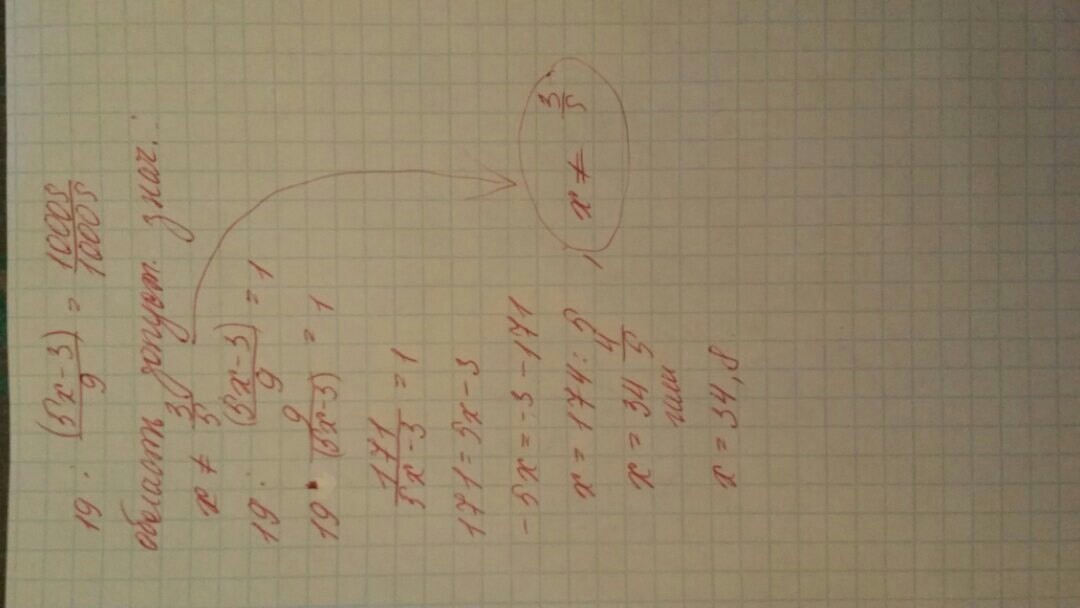 19 : (5x-3)/9 = 10005/10005
область допуст. знач.:
x ≠ 3/5
19 : (5x-3)/9 = 1
19 · 9/(5x-3) = 1
171/5x-3 = 1
171 = 5x-3
-5x = -3-171
x = 174 : 5 , x ≠ 3/5
x = 34 4/5
или
x = 34,8